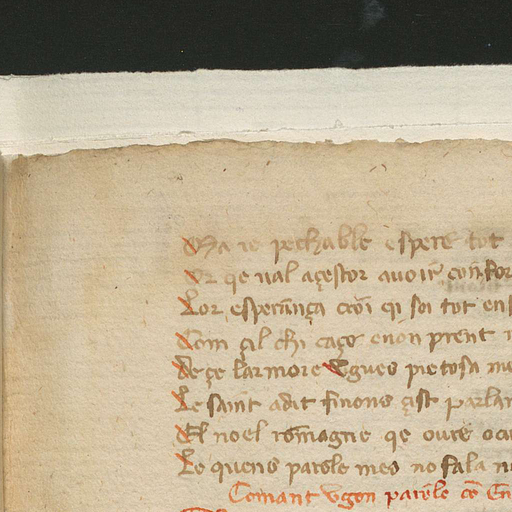 Ma ie pechable espere tot
Or qe ual açestor auoir confor
Lor esperança croi qi soi tot ens
Com çil chi caçe e non prent
De çe larmore Vgues pietosa me
Le saint adit sinons çist parlar
El noel romagne qe oure oca
Le quens parole mes no fala n
Comant Vgon parole cō En